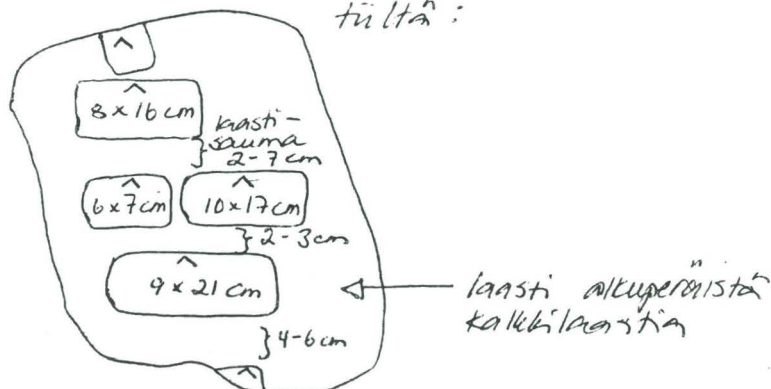 tiiltä:
^
^
8 x 16 cm
laasti-
sauma
2-7 cm
^
6 x 7 cm
^
10 x 17 cm
2-3 cm
^
9 x 21 cm
laasti alkuperäistä
kalkkilaastia
4-6 cm
^